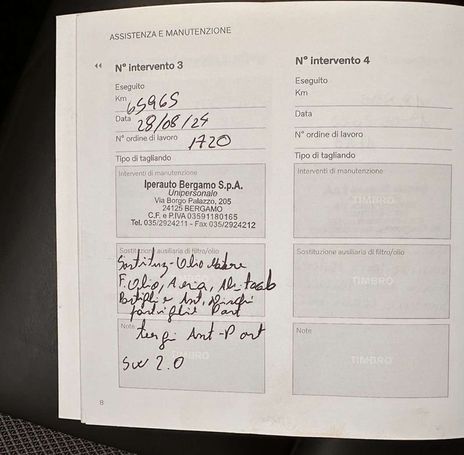 ASSISTENZA E MANUTENZIONE
N° intervento 3
Eseguito
Km 65965
Data 28/08/24
N° ordine di lavoro 1720
Tipo di tagliando
Interventi di manutenzione
Iperauto Bergamo S.p.A.
Unipersonale
Via Borgo Palazzo, 205
24125 BERGAMO
C.F. e P.IVA 03591180165
Tel. 035/2924211 - Fax 035/2924212
Sostituzione ausiliaria di filtro/olio
Olio Motore
F. Olio, Aria,
Ant,
Post
Note
tergi Ant-Post
TIMBRO
SW 2.0
8
N° intervento 4
Eseguito
Km
Data
N° ordine di lavoro
Tipo di tagliando
Interventi di manutenzione
TIMBRO
Sostituzione ausiliaria di filtro/olio
TIMBRO
Note
TIMBRO